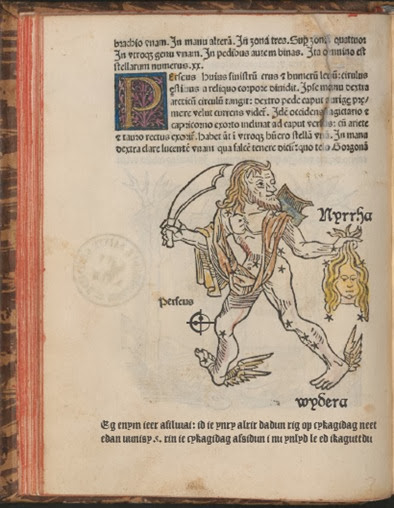 brachio vnam. In manu alterā. In zona tres. Sup zonā quattuor
In vtroqꝫ genu vnam. In pedibus autem binas. Ita omnino est
stellarum numerus .xx.
PErseus huius sinistrū crus & humerū leuū: circulus
estiuus a reliquo corpore diuidit. Ipse manu dextra
arcticū circulū tangit: dextro pede caput aurige pre
mere velut currens videt̄. Idē occidens sagitario &
capricorno exorto inclinat ad caput versus: cū ariete
& tauro rectus exorit̄. habet āt i vtroqꝫ hūero stellā vnā. In manu
dextra clare lucentē vnam qua falcē tenere dicit̄: quo telo Gorgonā
Nyrrha
Perseus
wydera
Eg enym ieer asiluuai: id ie ynry alxir dadun rig op cykagidag neet
edan uunisy .x. rin ie cykagidag assidun i nu ynlyd le ed ikagutt du